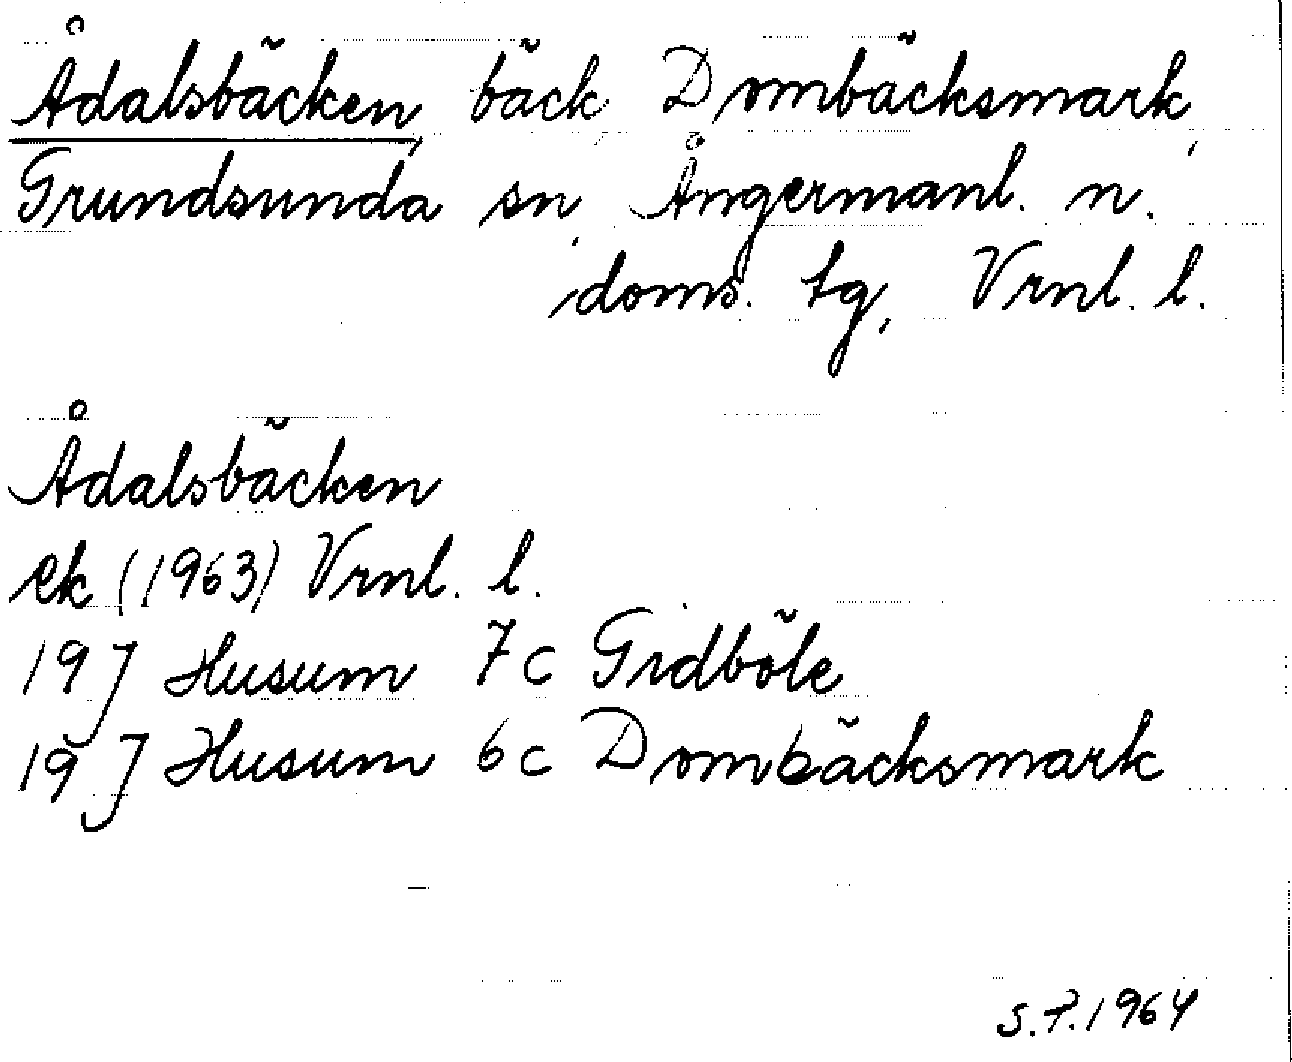 Ådalsbäcken, bäck, Dombäcksmark,
Grundsunda sn, Ångermanl. n.
doms. tg, Vrnl. l.
Ådalsbäcken
ek (1963) Vrnl. l.
19 J Husum 7c Gidböle
19 J Husum 6c Dombäcksmark
S.P. 1964